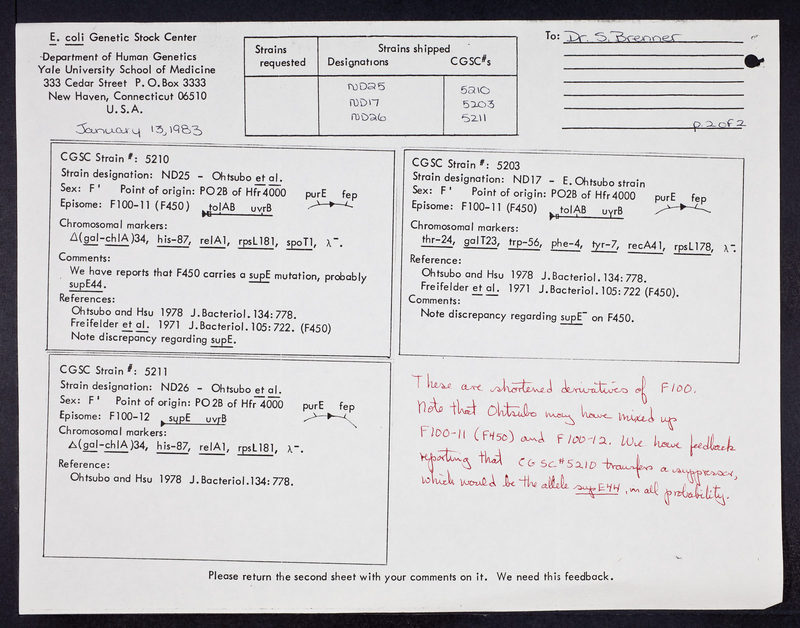 E. coli Genetic Stock Center
Department of Human Genetics
Yale University School of Medicine
333 Cedar Street P.O.Box 3333
New Haven, Connecticut 06510
U.S.A.
January 13, 1983
Strains requested
Strains shipped
Designations CGSC#s
ND25 5210
ND17 5203
ND26 5211
To: Dr. S. Brenner
p. 2 of 2
CGSC Strain #: 5210
Strain designation: ND25 - Ohtsubo et al.
Sex: F' Point of origin: PO2B of Hfr4000 purE fep
Episome: F100-11 (F450) tolAB uvrB
Chromosomal markers:
Δ(gal-chlA)34, his-87, relA1, rpsL181, spoT1, λ⁻.
Comments:
We have reports that F450 carries a supE mutation, probably
supE44.
References:
Ohtsubo and Hsu 1978 J.Bacteriol.134:778.
Freifelder et al. 1971 J.Bacteriol.105:722. (F450)
Note discrepancy regarding supE.
CGSC Strain #: 5203
Strain designation: ND17 - E.Ohtsubo strain
Sex: F' Point of origin: PO2B of Hfr4000 purE fep
Episome: F100-11 (F450) tolAB uvrB
Chromosomal markers:
thr-24, galT23, trp-56, phe-4, tyr-7, recA41, rpsL178, λ⁻.
Reference:
Ohtsubo and Hsu 1978 J.Bacteriol.134:778.
Freifelder et al. 1971 J.Bacteriol.105:722 (F450).
Comments:
Note discrepancy regarding supE⁻ on F450.
CGSC Strain #: 5211
Strain designation: ND26 - Ohtsubo et al.
Sex: F' Point of origin: PO2B of Hfr 4000 purE fep
Episome: F100-12 supE uvrB
Chromosomal markers:
Δ(gal-chlA)34, his-87, relA1, rpsL181, λ⁻.
Reference:
Ohtsubo and Hsu 1978 J.Bacteriol.134:778.
These are shortened derivatives of F100.
Note that Ohtsubo may have mixed up
F100-11 (F450) and F100-12. We have feedback
reporting that CGSC#5210 transfers a suppressor,
which would be the allele supE44, in all probability.
Please return the second sheet with your comments on it. We need this feedback.